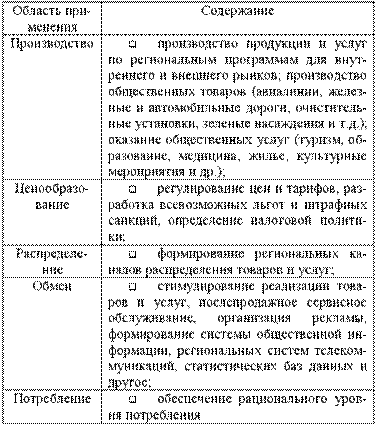 Область при- Содержание
менения
Производство □ производство продукции и услуг
по региональным программам для внут-
реннего и внешнего рынков; производство
общественных товаров (авиалинии, желез-
ные и автомобильные дороги, очиститель-
ные установки, зеленые насаждения и т.д.);
оказание общественных услуг (туризм, об-
разование, медицина, жилье, культурные
мероприятия и др.);
Ценообразо- □ регулирование цен и тарифов, раз-
вание работка всевозможных льгот и штрафных
санкций, определение налоговой полити-
ки;
Распределе- □ формирование региональных ка-
ние налов распределения товаров и услуг;
Обмен □ стимулирование реализации това-
ров и услуг, послепродажное сервисное
обслуживание, организация рекламы,
формирование системы общественной ин-
формации, региональных систем телеком-
муникаций, статистических баз данных и
другое;
Потребление □ обеспечение рационального уров-
ня потребления